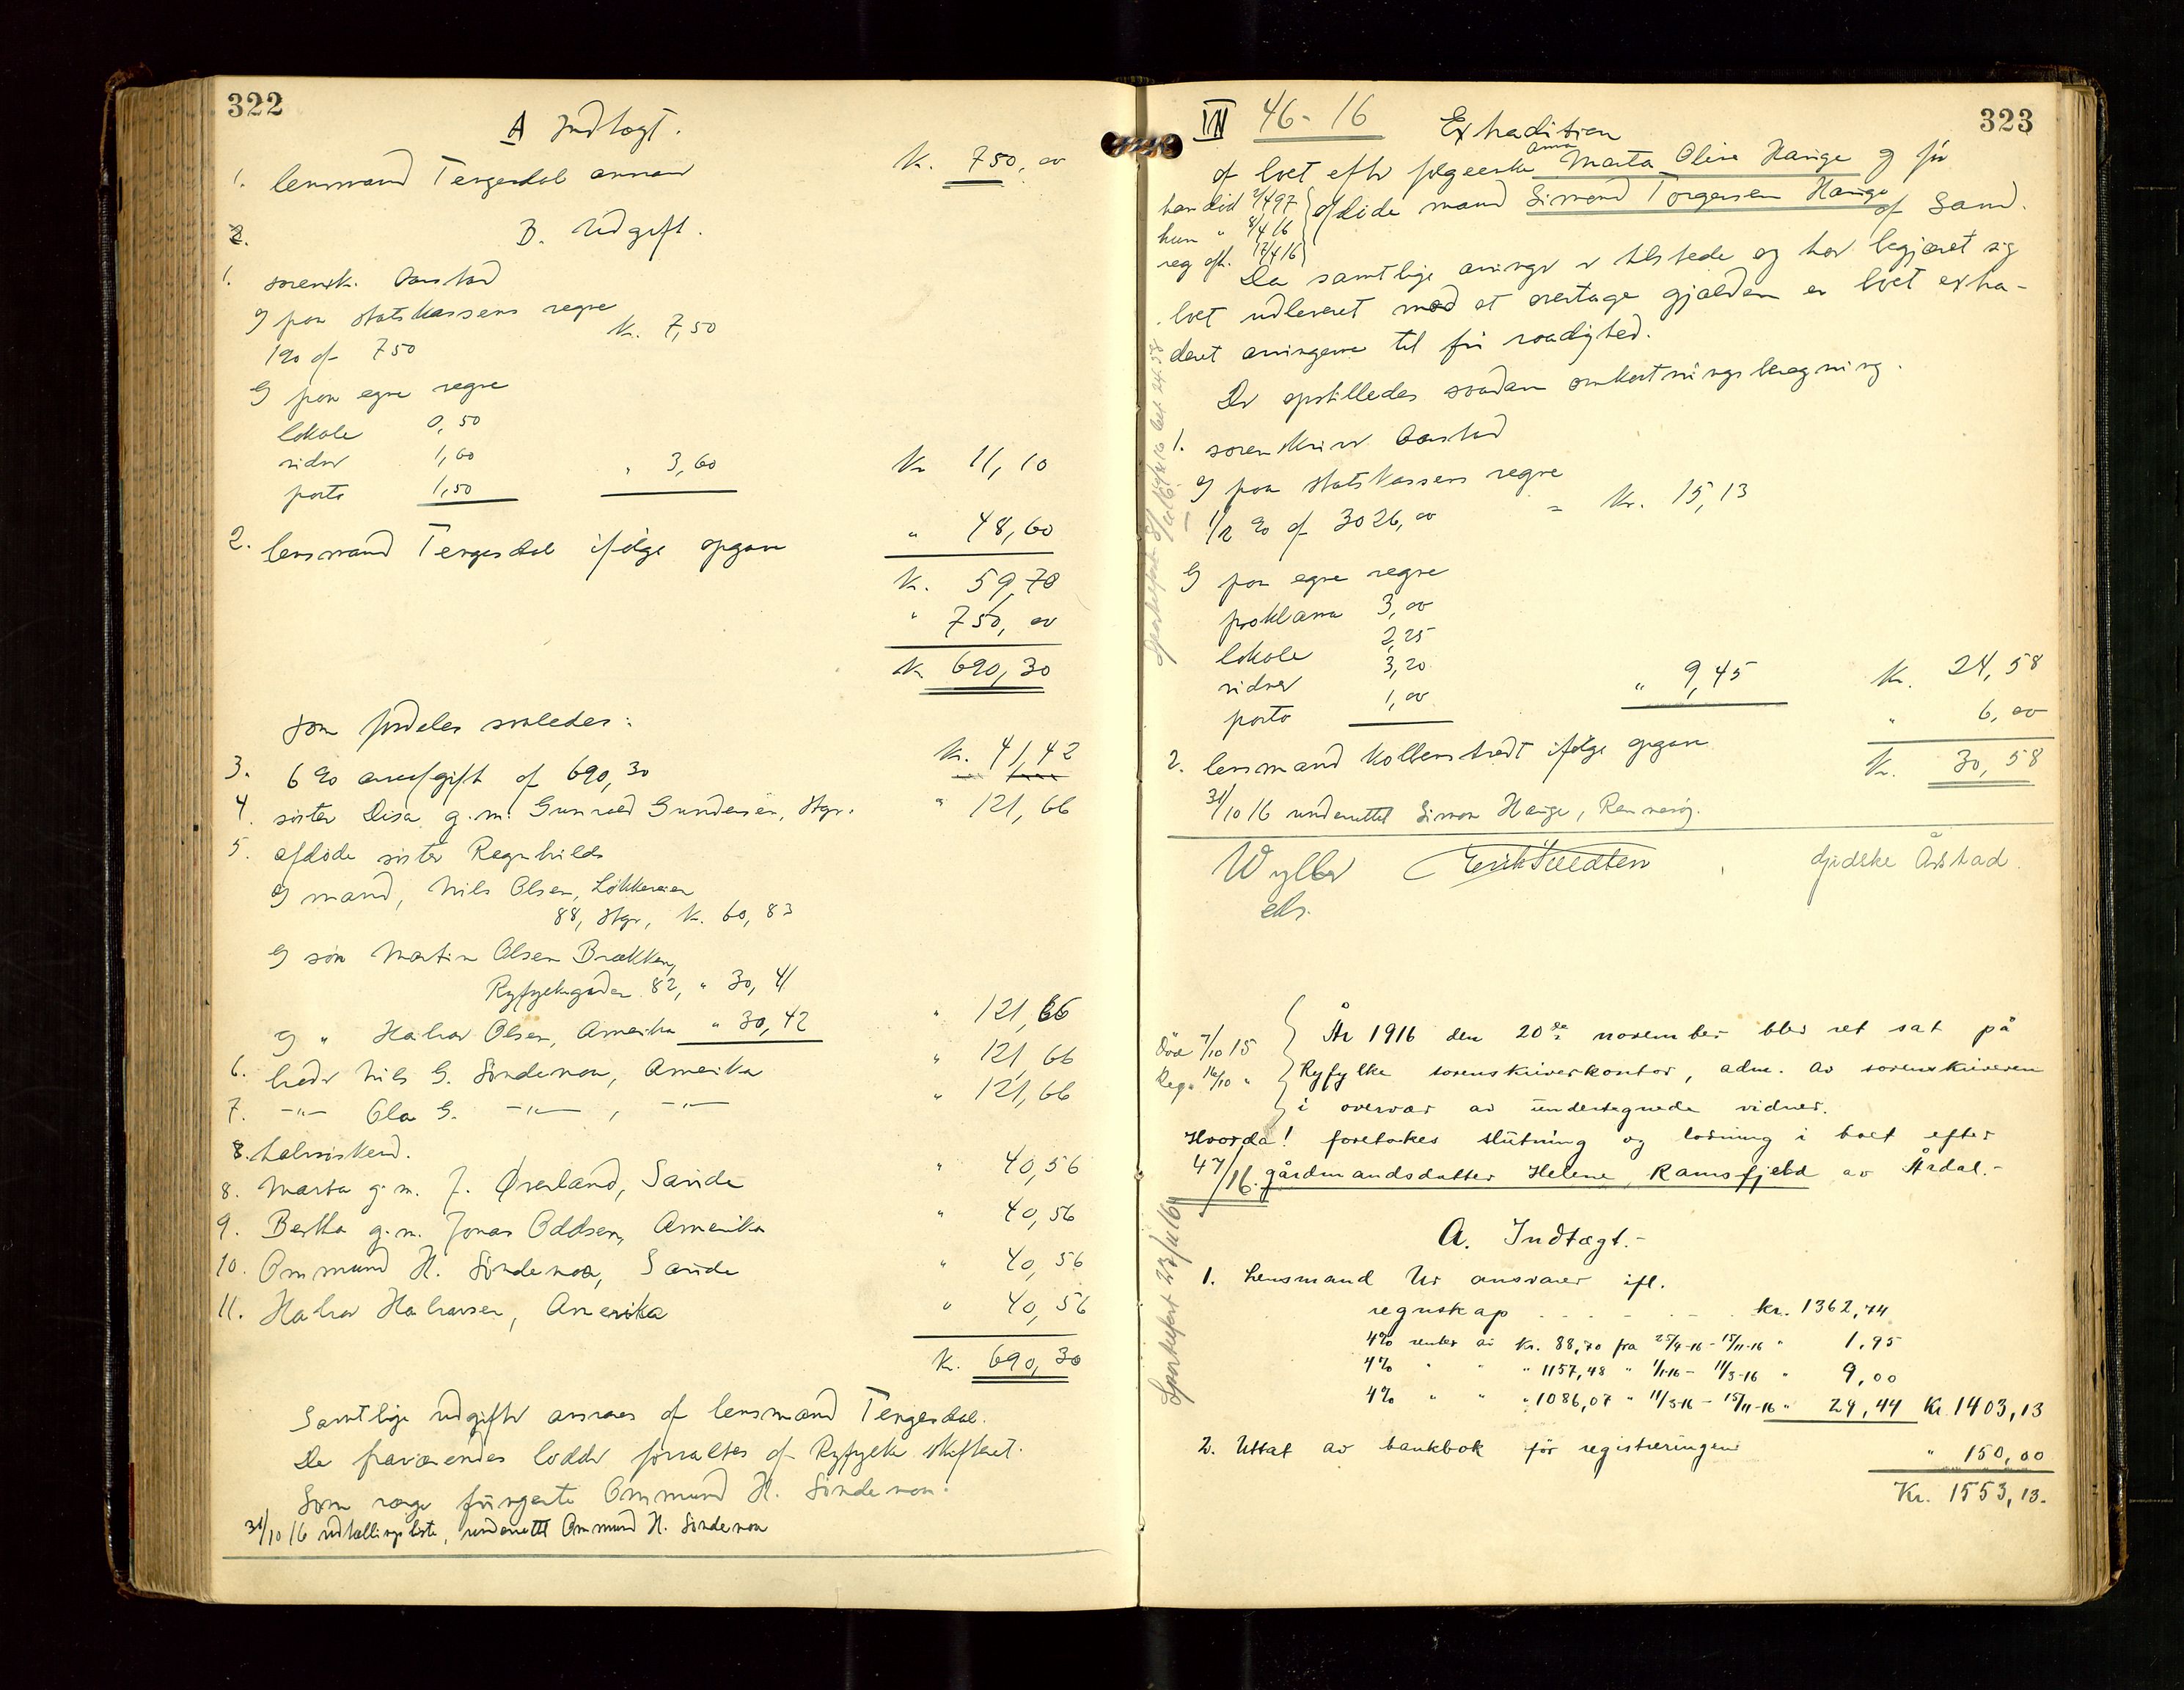 322
A Indtægt.
1. lensmand Tengesdal ansvar K. 750,00
B. Udgift.
1. sorensk. Aarstad
g paa statskassens regne
1% af 750 K. 7,50
g paa egne regne
lokale 0,50
vidner 1,60
porto 1,50 " 3,60 Kr 11,10
2. lensmand Tengesdal ifølge opgave " 48,60
K. 59,70
" 750,00
K. 690,30
som fordeles saaledes:
3. 6% arveafgift af 690,30 Kr. 41,42
4. søster Disa g.m. Gunvald Gundersen, Stgr. " 121,66
5. afdøde søster Regnhilds
g mand, Nils Olsen, Løkkeveien
88, Stgr, K. 60,83
g søn Martin Olsen Brækken,
Ryfylkegaden 82, " 30,41
g " Halvor Olsen, Amerika " 30,42 " 121,66
6. broder Nils G. Søndenaa, Amerika " 121,66
7. -"- Ola G. -"- , -"- " 121,66
8. halvsøskend.
8. Marta g.m. J. Øverland, Sauda " 40,56
9. Bertha g.m. Jonas Oddsen, Amerika " 40,56
10. Ommund H. Søndenaa, Saude " 40,56
11. Halvor Halvorsen, Amerika " 40,56
K. 690,30
Samtlige udgifter ansvares af lensmand Tengesdal.
De fraværendes lodder forvaltes af Ryfylke skifteret.
Som værge fungerte Ommund H. Søndenaa.
31/10 16 udtællingsliste, underrettet Ommund H. Søndenaa
323
IV 46-16 Extradition
af boet efter følgeenke Anna Marta Oline Hauge g før
han död 2/4 97 afdøde mand Simond Torgersen Hauge af Sand.
hun " 8/4 16
reg afh. 17/4 16
Da samtlige arvinger er tilstede og har begjæret sig
boet udleveret mod at overtage gjælden er boet extra-
deret arvingerne til fri raadighed.
Der opstilledes saadan omkostningsberegning.
1. sorenskriver Aarstad
g paa statskassens regne
1/2 % af 3026,00 = Kr. 15,13
g paa egne regne
proklama 3,00
lokale 2,25
vidner 3,20
porto 1,00 " 9,45 Kr. 24,58
2. lensmand Kolbenstvedt ifølge opgave " 6,00
Kr. 30,58
31/10 16 underrettet Simon Hauge, Rennesøy.
Wyller Erik Tvedten Gjidske Årstad
eks.
Död 7/10 15
Reg. 16/10 "
År 1916 den 20de november blev ret sat på
Ryfylke sorenskriverkontor, adm. av sorenskriveren
i overvær av undertegnede vidner.
Hvorda! foretokes slutning og lodning i boet efter
47/16. gårdmandsdatter Helene Ramsfjeld av Årdal.-
Sportelført 23/11 16
A. Indtægt.-
1. Lensmand Ur ansvarer ifl.
regnskap . . . . . kr. 1362,74
4% renter av Kr. 88,70 fra 25/4-16 - 15/11-16 " 1,95
4% " " " 1157,48 " 1/1-16 - 11/3-16 " 9,00
4% " " " 1086,07 " 11/3-16 - 15/11-16 " 29,44 Kr. 1403,13
2. Uttat av bankbok før registreringen " 150,00
Kr. 1553,13.